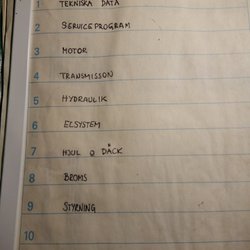 1 TEKNISKA DATA
2 SERVICEPROGRAM
3 MOTOR
4 TRANSMISSON
5 HYDRAULIK
6 ELSYSTEM
7 HJUL O DÄCK
8 BROMS
9 STYRNING
10